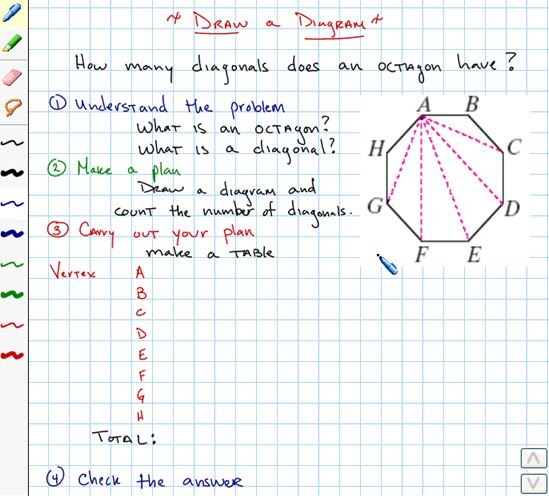 ~ DRAW a DIAGRAM ~
How many diagonals does an OCTAgon have?
① Understand the problem
What is an OCTAgon?
What is a diagonal?
② Make a plan
DRAW a diagram and
COUNT the number of diagonals.
③ Carry out your plan
make a TABLE
Vertex A
B
C
D
E
F
G
H
TOTAL:
④ Check the answer
A B
H C
G D
F E